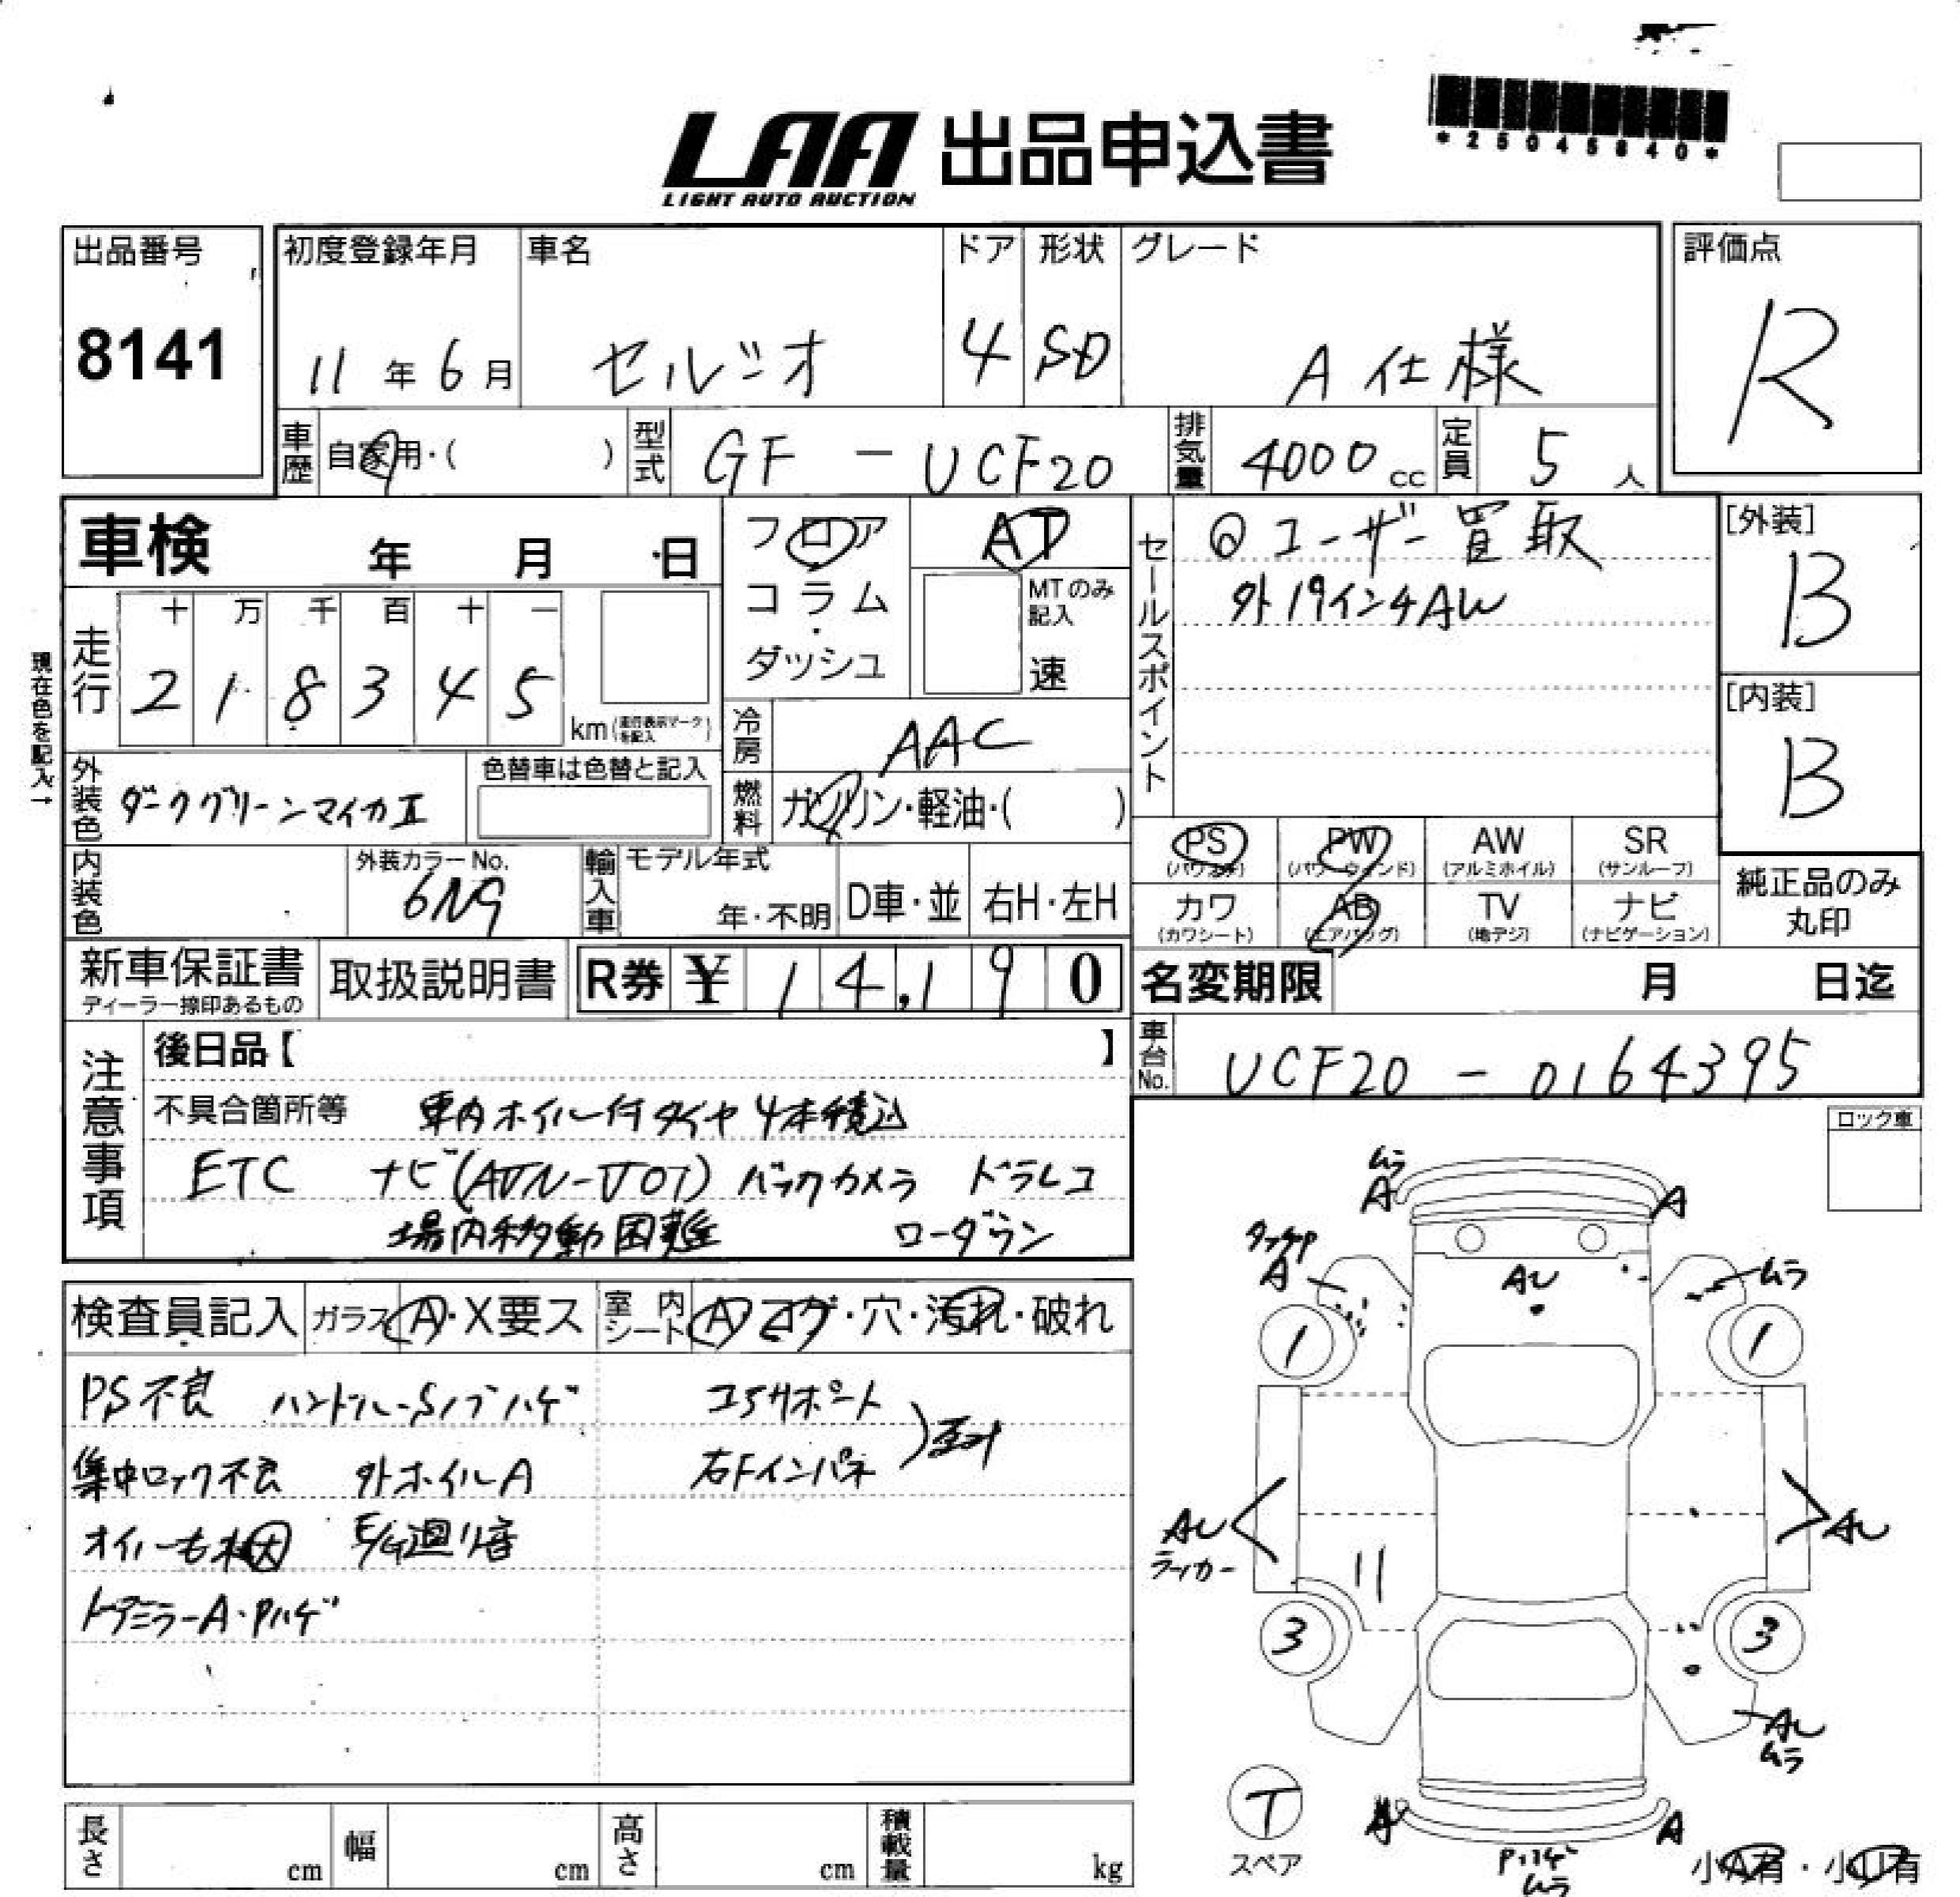 *25045840*
LAA 出品申込書
LIGHT AUTO AUCTION
出品番号
8141
初度登録年月
11年6月
車名
セルシオ
ドア
4
形状
SD
グレード
A仕様
評価点
R
車歴 自家用・( )
型式 GF-UCF20
排気量 4000cc
定員 5人
車検 年 月 日
フロア
コラム
・
ダッシュ
AT
MTのみ
記入
速
セールスポイント
ユーザー買取
外19インチAW
[外装]
B
[内装]
B
現在色を記入→
走行
十 万 千 百 十 一
2 1 8 3 4 5
km
冷房 AAC
外装色 ダークグリーンマイカII
色替車は色替と記入
燃料 ガソリン・軽油・( )
内装色
外装カラーNo.
6N9
輸入車
モデル年式
年・不明
D車・並
右H・左H
PS (パワステ)
PW (パワーウィンド)
AW (アルミホイル)
SR (サンルーフ)
カワ (カワシート)
AB (エアバッグ)
TV (地デジ)
ナビ (ナビゲーション)
純正品のみ
丸印
新車保証書
ディーラー捺印あるもの
取扱説明書
R券 ¥ 14,190
名変期限 月 日迄
車台No. UCF20-0164395
注意事項
後日品【 】
不具合箇所等 車内ホイル付タイヤ4本積込
ETC ナビ バックカメラ ドラレコ
場内移動困難 ローダウン
ロック車
検査員記入
ガラス A・X要ス
室内シート A コゲ・穴・汚れ・破れ
PS不良 ハンドル・Sノブハゲ コアサポート
集中ロック不良 外ホイルA 右Fインパネ
オイルモレ大 E/G廻り音
ドアミラーA・Pハゲ
ムラ
A
A
A
AU
ムラ
1
1
AU
AU
11
3
3
AU
ムラ
T
スペア
A
A
Pハゲ
ムラ
小A有・小U有
長さ cm
幅 cm
高さ cm
積載量 kg